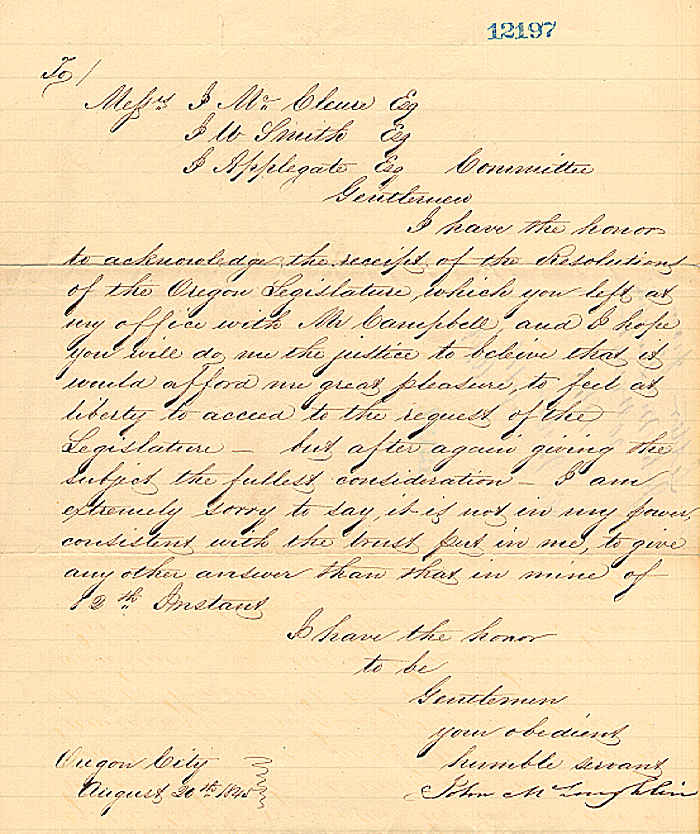 12197
To /
Messrs J Mc Clure Esq
J W Smith Esq
J Applegate Esq Committee
Gentlemen
I have the honor
to acknowledge the receipt of the Resolutions
of the Oregon Legislature, which you left at
my office with Mr Campbell, and I hope
you will do me the justice to beleive that it
would afford me great pleasure, to feel at
liberty to acceed to the request of the
Legislature – but after again giving the
subject the fullest consideration – I am
extremely sorry to say, it is not in my power,
consistent with the trust put in me, to give
any other answer than that in mine of
12th Instant
I have the honor
to be
Gentlemen
your obedient
humble servant
John McLoughlin
Oregon City
August 20th 1845